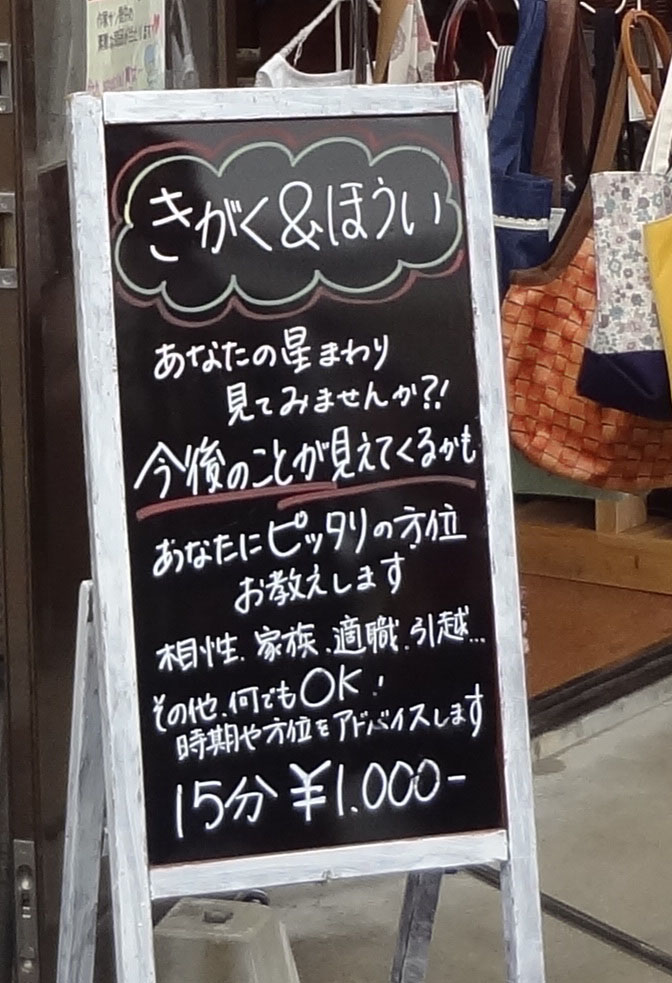 きがく&ほうい
あなたの星まわり
見てみませんか?!
今後のことが見えてくるかも
あなたにピッタリの方位
お教えします
相性、家族、適職、引越…
その他、何でもOK!
時期や方位をアドバイスします
15分 ¥1.000-